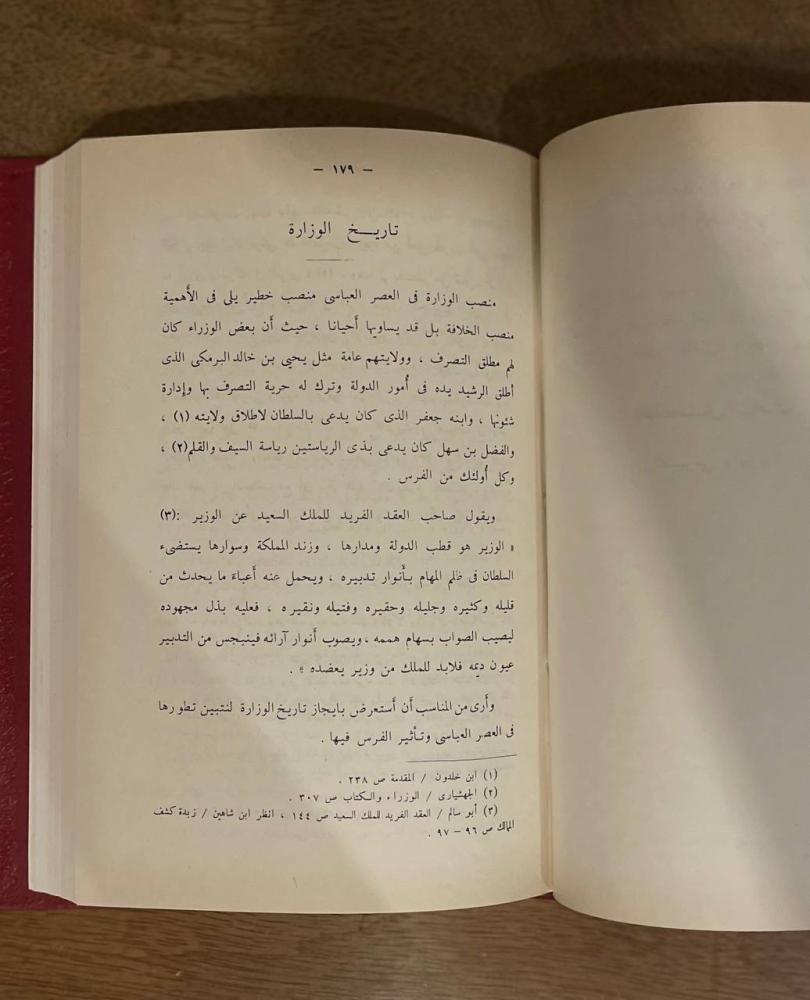 – ١٧٩ –
تاريــخ الوزارة
منصب الوزارة فى العصر العباسى منصب خطير يلى فى الأهمية
منصب الخلافة بل قد يساويها أحيانا ، حيث أن بعض الوزراء كان
لهم مطلق التصرف ، وولايتهم عامة مثل يحيى بن خالد البرمكى الذى
أطلق الرشيد يده فى أمور الدولة وترك له حرية التصرف بها وإدارة
شئونها ، وابنه جعفر الذى كان يدعى بالسلطان لاطلاق ولايته (١) ،
والفضل بن سهل كان يدعى بذى الرياستين رياسة السيف والقلم(٢) ،
وكل أولئك من الفرس .
ويقول صاحب العقد الفريد للملك السعيد عن الوزير :(٣)
« الوزير هو قطب الدولة ومدارها ، وزند المملكة وسوارها يستضىء
السلطان فى ظلم المهام بأنوار تدبيره ، ويحمل عنه أعباء ما يحدث من
قليله وكثيره وجليله وحقيره وفتيله ونقيره ، فعليه بذل مجهوده
ليصيب الصواب بسهام هممه ، ويصوب أنوار آرائه فينبجس من التدبير
عيون ديمه فلابد للملك من وزير يعضده » .
وأرى من المناسب أن أستعرض بايجاز تاريخ الوزارة لنتبين تطورها
فى العصر العباسى وتأثير الفرس فيها .
(١) ابن خلدون / المقدمة ص ٢٣٨ .
(٢) الجهشيارى / الوزراء والكتاب ص ٣٠٧ .
(٣) أبو سالم / العقد الفريد للملك السعيد ص ١٤٤ ، انظر ابن شاهين / زبدة كشف
المالك ص ٩٦ – ٩٧ .